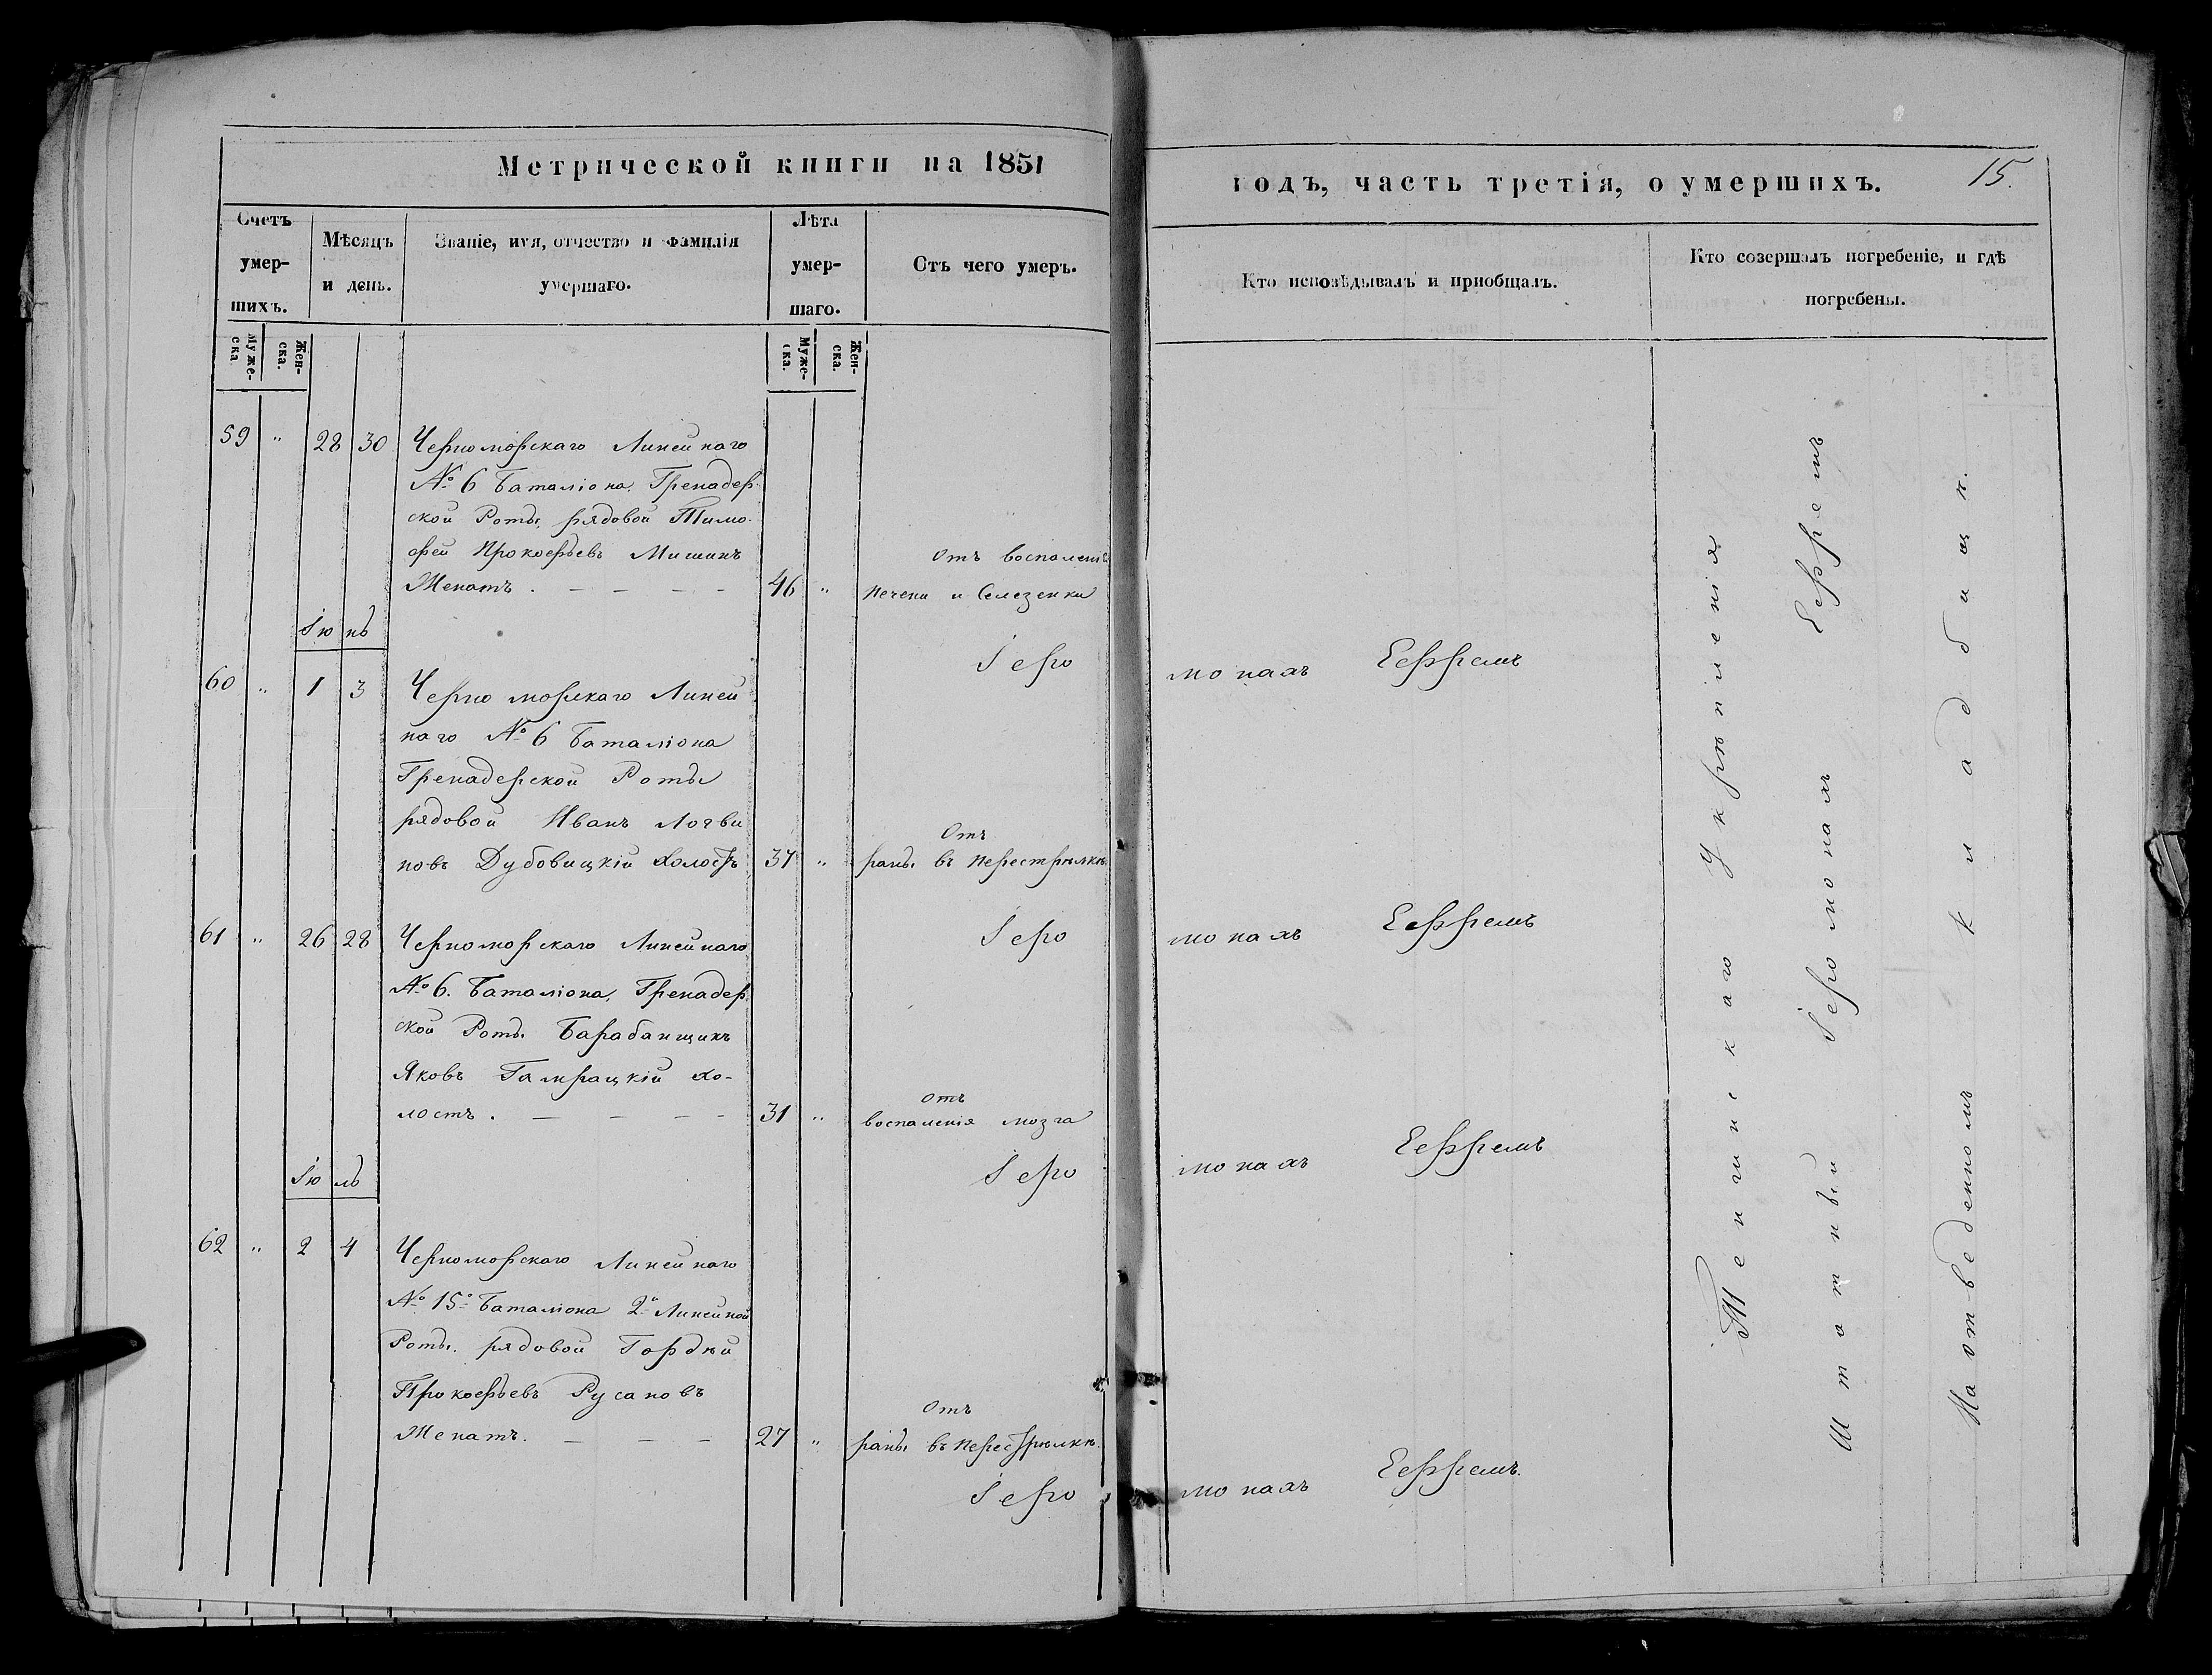 Метрической книги на 1851
годъ, часть третія, о умершихъ.
15.
Счетъ
умер-
шихъ.
Мѣсяцъ
и день.
Званіе, имя, отчество и фамилія
умершаго.
Лѣта
умер-
шаго.
Отъ чего умеръ.
Кто исповѣдывалъ и пріобщалъ.
Кто совершалъ погребеніе, и гдѣ
погребены.
Муже-
ска
Жен-
ска.
Муже-
ска.
Жен-
ска.
59 " 28 30 Черноморскаго Линейнаго
№ 6 Баталіона, Гренадер-
ской Роты, рядовой Тимо-
фей Прокофьевъ Мишинъ
Отъ воспаленія
Женатъ . — — — — 46 " печени и Селезенки
Іюнь
Іеро монахъ Ефремъ
60 " 1 3 Черноморскаго Линей
наго № 6 Баталіона
Гренадерской Роты
рядовой Иванъ Логви
Отъ
новъ Дубовицкій холостъ 37 " раны въ перестрѣлкѣ
61 " 26 28 Черноморскаго Линейнаго
Іеро монахъ Ефремъ
№ 6. Баталіона, Гренадер
ской Роты Барабанщикъ
Яковъ Гамрацкій хо-
Отъ
лостъ . — — — — 31 " воспаленія мозга
Іеро монахъ Ефремъ
Іюль
62 " 2 4 Черноморскаго Линейнаго
№ 15º Баталіона 2й Линейной
Роты. рядовой Гордѣй
Прокофьевъ Русановъ
Отъ
Женатъ. — — — 27 " раны въ перестрѣлкѣ.
Іеро монахъ Ефремъ.
Тенгинскаго Укрѣпленія
Штатный Іеромонахъ Ефремъ
На отведенномъ Кладбищѣ.